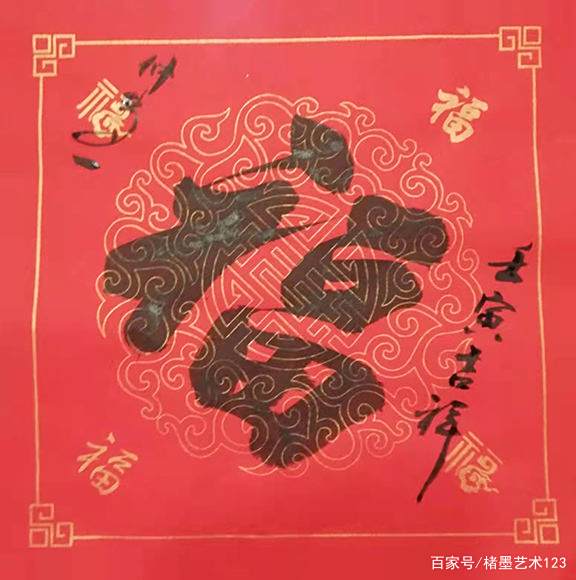 福
福
福
壬寅吉祥
福
福
百家号/楮墨艺术123